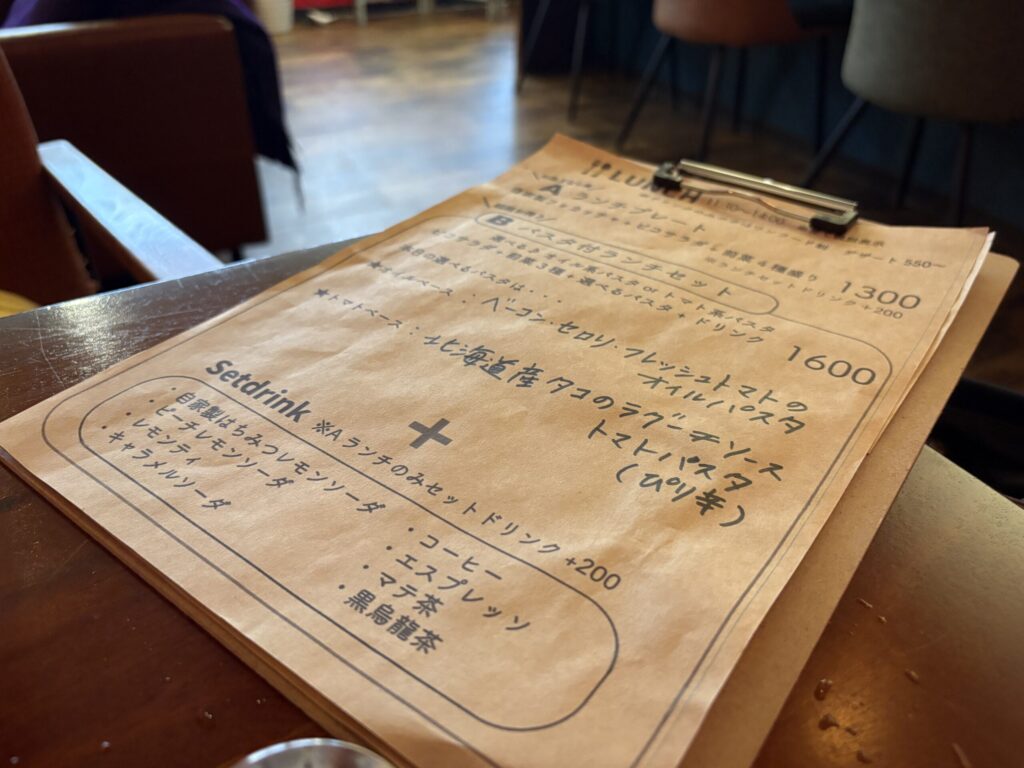 LUNCH 11:30~14:00
デザート 550~
A ランチプレート
1300
※ランチセットドリンク+200
B パスタ付ランチセット
選べるオイル系パスタorトマト系パスタ
サラダ+前菜3種+選べるパスタ+ドリンク
1600
の選べるパスタは・・・
★オイルベース：ベーコン・セロリ・フレッシュトマトの
オイルパスタ
★トマトベース：北海道産タコのラグーソース
トマトパスタ
(ぴり辛)
+
Setdrink ※Aランチのみセットドリンク+200
・自家製はちみつレモンソーダ
・ピーチレモンソーダ
・レモンティ
・キャラメルソーダ
・コーヒー
・エスプレッソ
・マテ茶
・黒烏龍茶